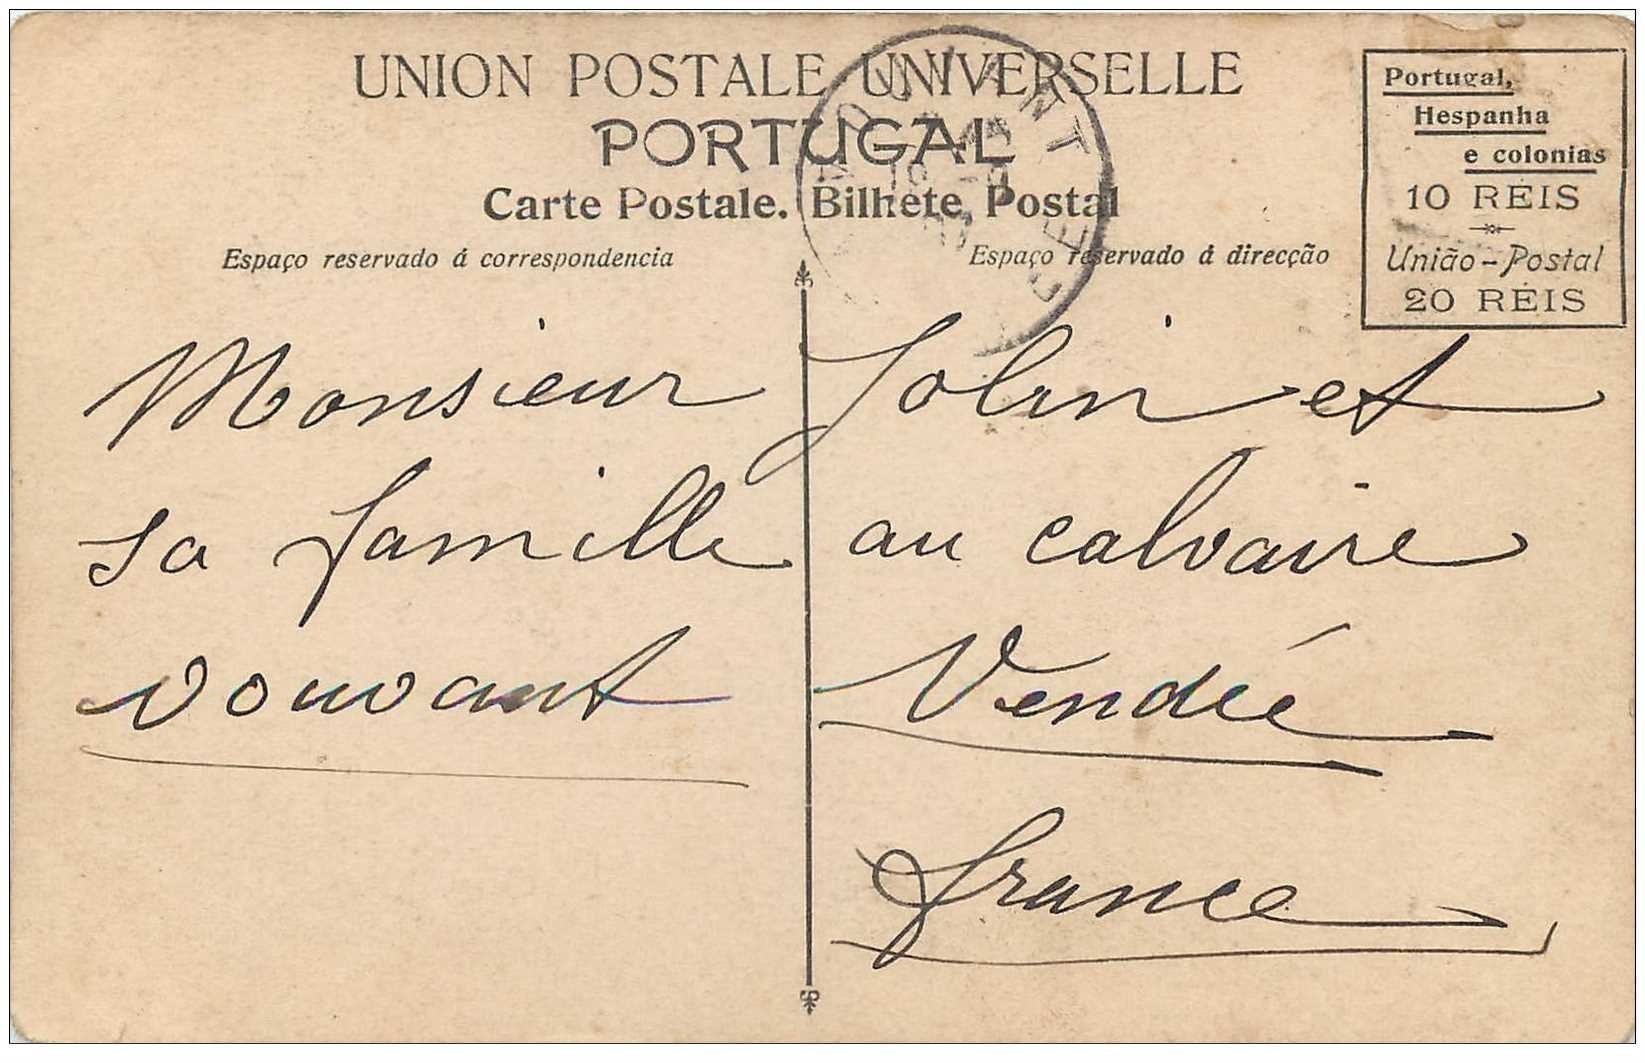 UNION POSTALE UNIVERSELLE
PORTUGAL
Carte Postale. Bilhete Postal
Espaço reservado á correspondencia
Espaço reservado á direcção
Portugal,
Hespanha
e colonias
10 REIS
União-Postal
20 REIS
VOUVANT
Monsieur Jolin et
sa famille au calvaire
vouvant Vendée
france